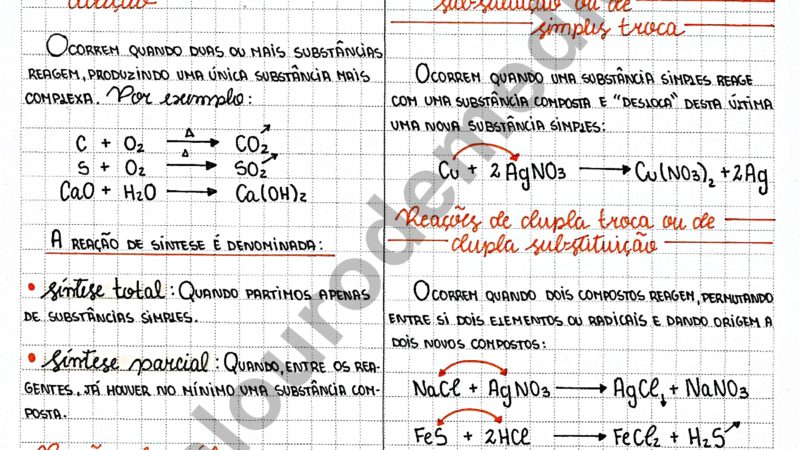 OCORREM QUANDO DUAS OU MAIS SUBSTÂNCIAS
REAGEM, PRODUZINDO UMA ÚNICA SUBSTÂNCIA MAIS
COMPLEXA. Por exemplo:
C + O₂ —Δ→ CO₂↗
S + O₂ —Δ→ SO₂↗
CaO + H₂O → Ca(OH)₂
A REAÇÃO DE SÍNTESE É DENOMINADA:
• síntese total: QUANDO PARTIMOS APENAS
DE SUBSTÂNCIAS SIMPLES.
• síntese parcial: QUANDO, ENTRE OS REA-
GENTES, JÁ HOUVER NO MÍNIMO UMA SUBSTÂNCIA COM-
POSTA.
substituição ou de
simples troca
OCORREM QUANDO UMA SUBSTÂNCIA SIMPLES REAGE
COM UMA SUBSTÂNCIA COMPOSTA E "DESLOCA" DESTA ÚLTIMA
UMA NOVA SUBSTÂNCIA SIMPLES:
Cu + 2AgNO₃ → Cu(NO₃)₂ + 2Ag
Reações de dupla troca ou de
dupla substituição
OCORREM QUANDO DOIS COMPOSTOS REAGEM, PERMUTANDO
ENTRE SI DOIS ELEMENTOS OU RADICAIS E DANDO ORIGEM A
DOIS NOVOS COMPOSTOS:
NaCl + AgNO₃ → AgCl↓ + NaNO₃
FeS + 2HCl → FeCl₂ + H₂S↗